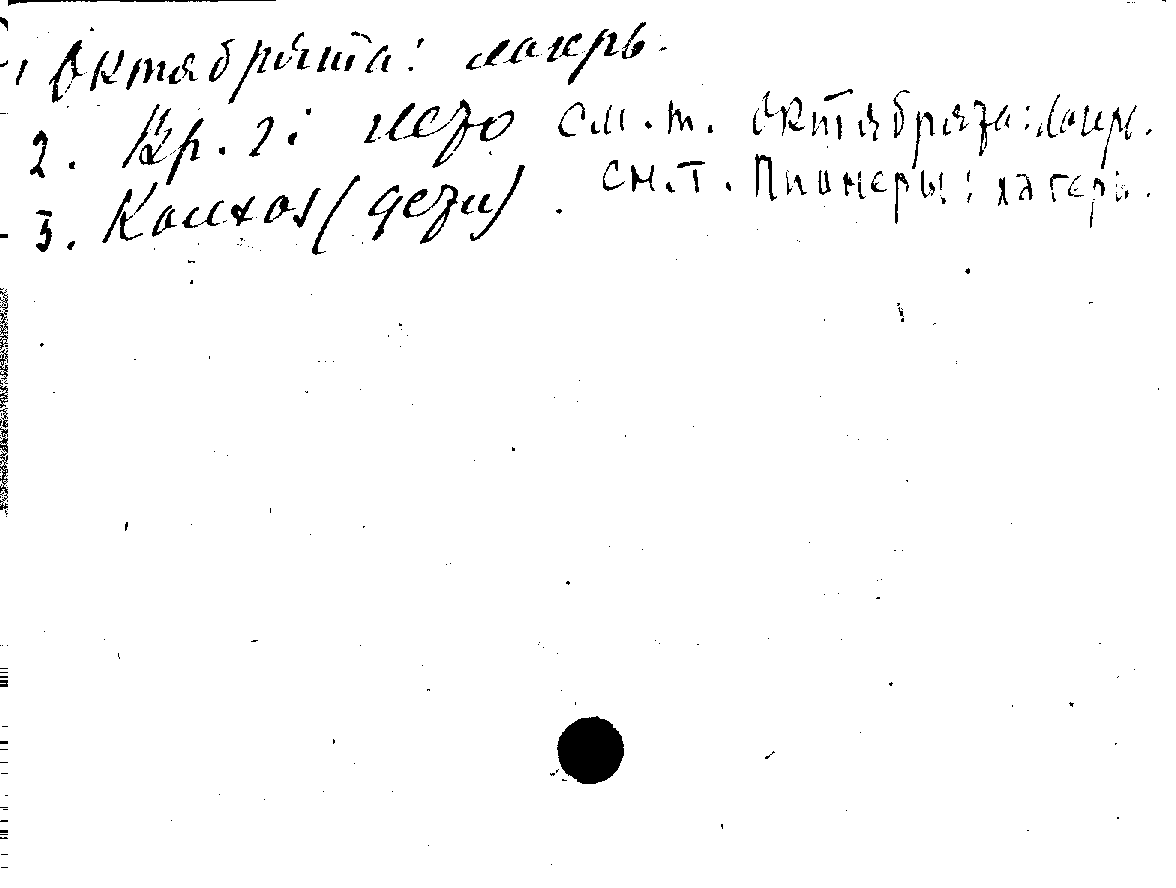 1 Октябрята: лагерь.
2. Вр. г: лето см. т. Октябрята: лагерь.
3. Колхоз (дети). см. т. Пионеры: лагерь.